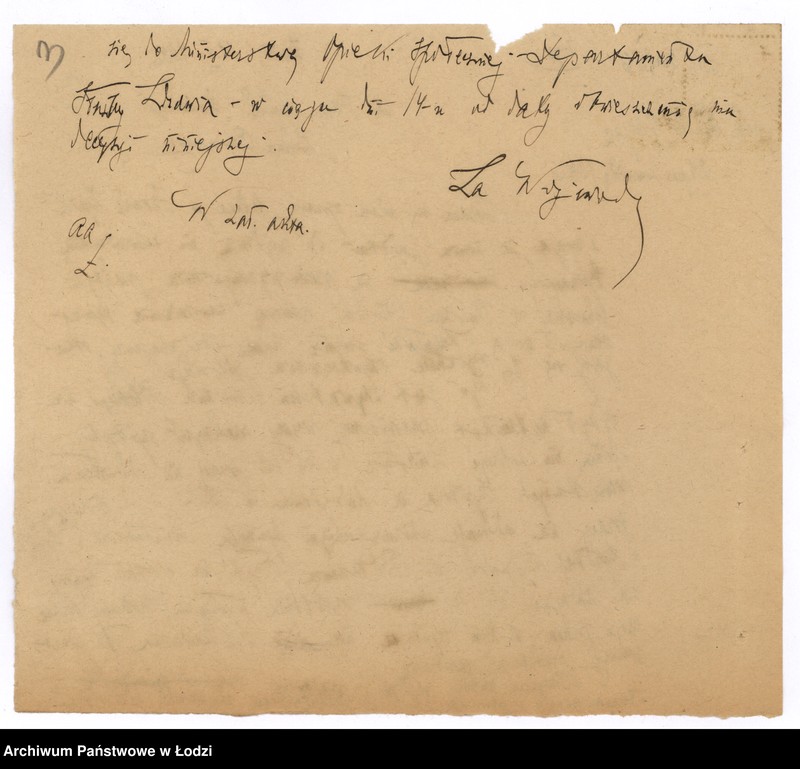 3
się do Ministerstwa Opieki Społecznej - Departamentu
Służby Zdrowia - w ciągu dni 14-u od daty
decyzji niniejszej.
Za Wojewodę
W zał. akta.
aa
Archiwum Państwowe w Łodzi